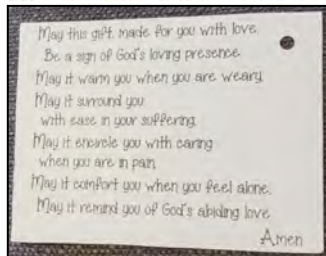 May this gift, made for you with love,
Be a sign of God's loving presence.
May it warm you when you are weary.
May it surround you
with ease in your suffering.
May it encircle you with caring
when you are in pain.
May it comfort you when you feel alone.
May it remind you of God's abiding love.
Amen